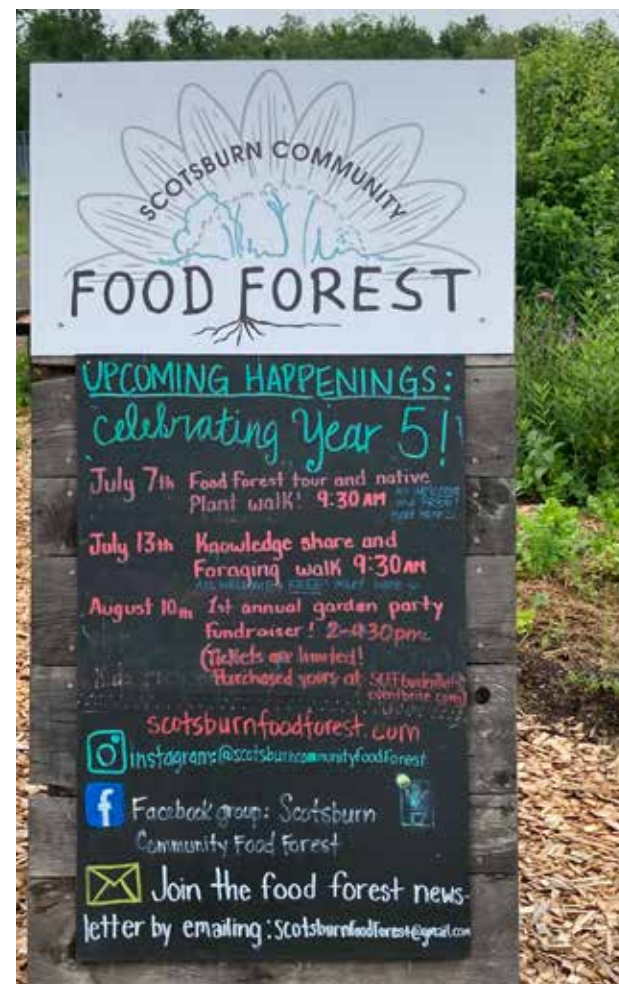 SCOTSBURN COMMUNITY
FOOD FOREST
UPCOMING HAPPENINGS:
Celebrating Year 5!
July 7th Food Forest tour and native
Plant walk! 9:30 AM
ALL WELCOME
and FREE!
meet here
July 13th Knowledge share and
Foraging walk 9:30AM
ALL WELCOME & FREE! meet here
August 10th 1st annual garden party
fundraiser! 2-4:30pm
(Tickets are limited!
Purchased yours at
eventbrite.com)
scotsburnfoodforest.com
instagram:@scotsburncommunityfoodforest
Facebook group: Scotsburn
Community Food Forest
Join the food forest news-
letter by emailing: scotsburnfoodforest@gmail.com